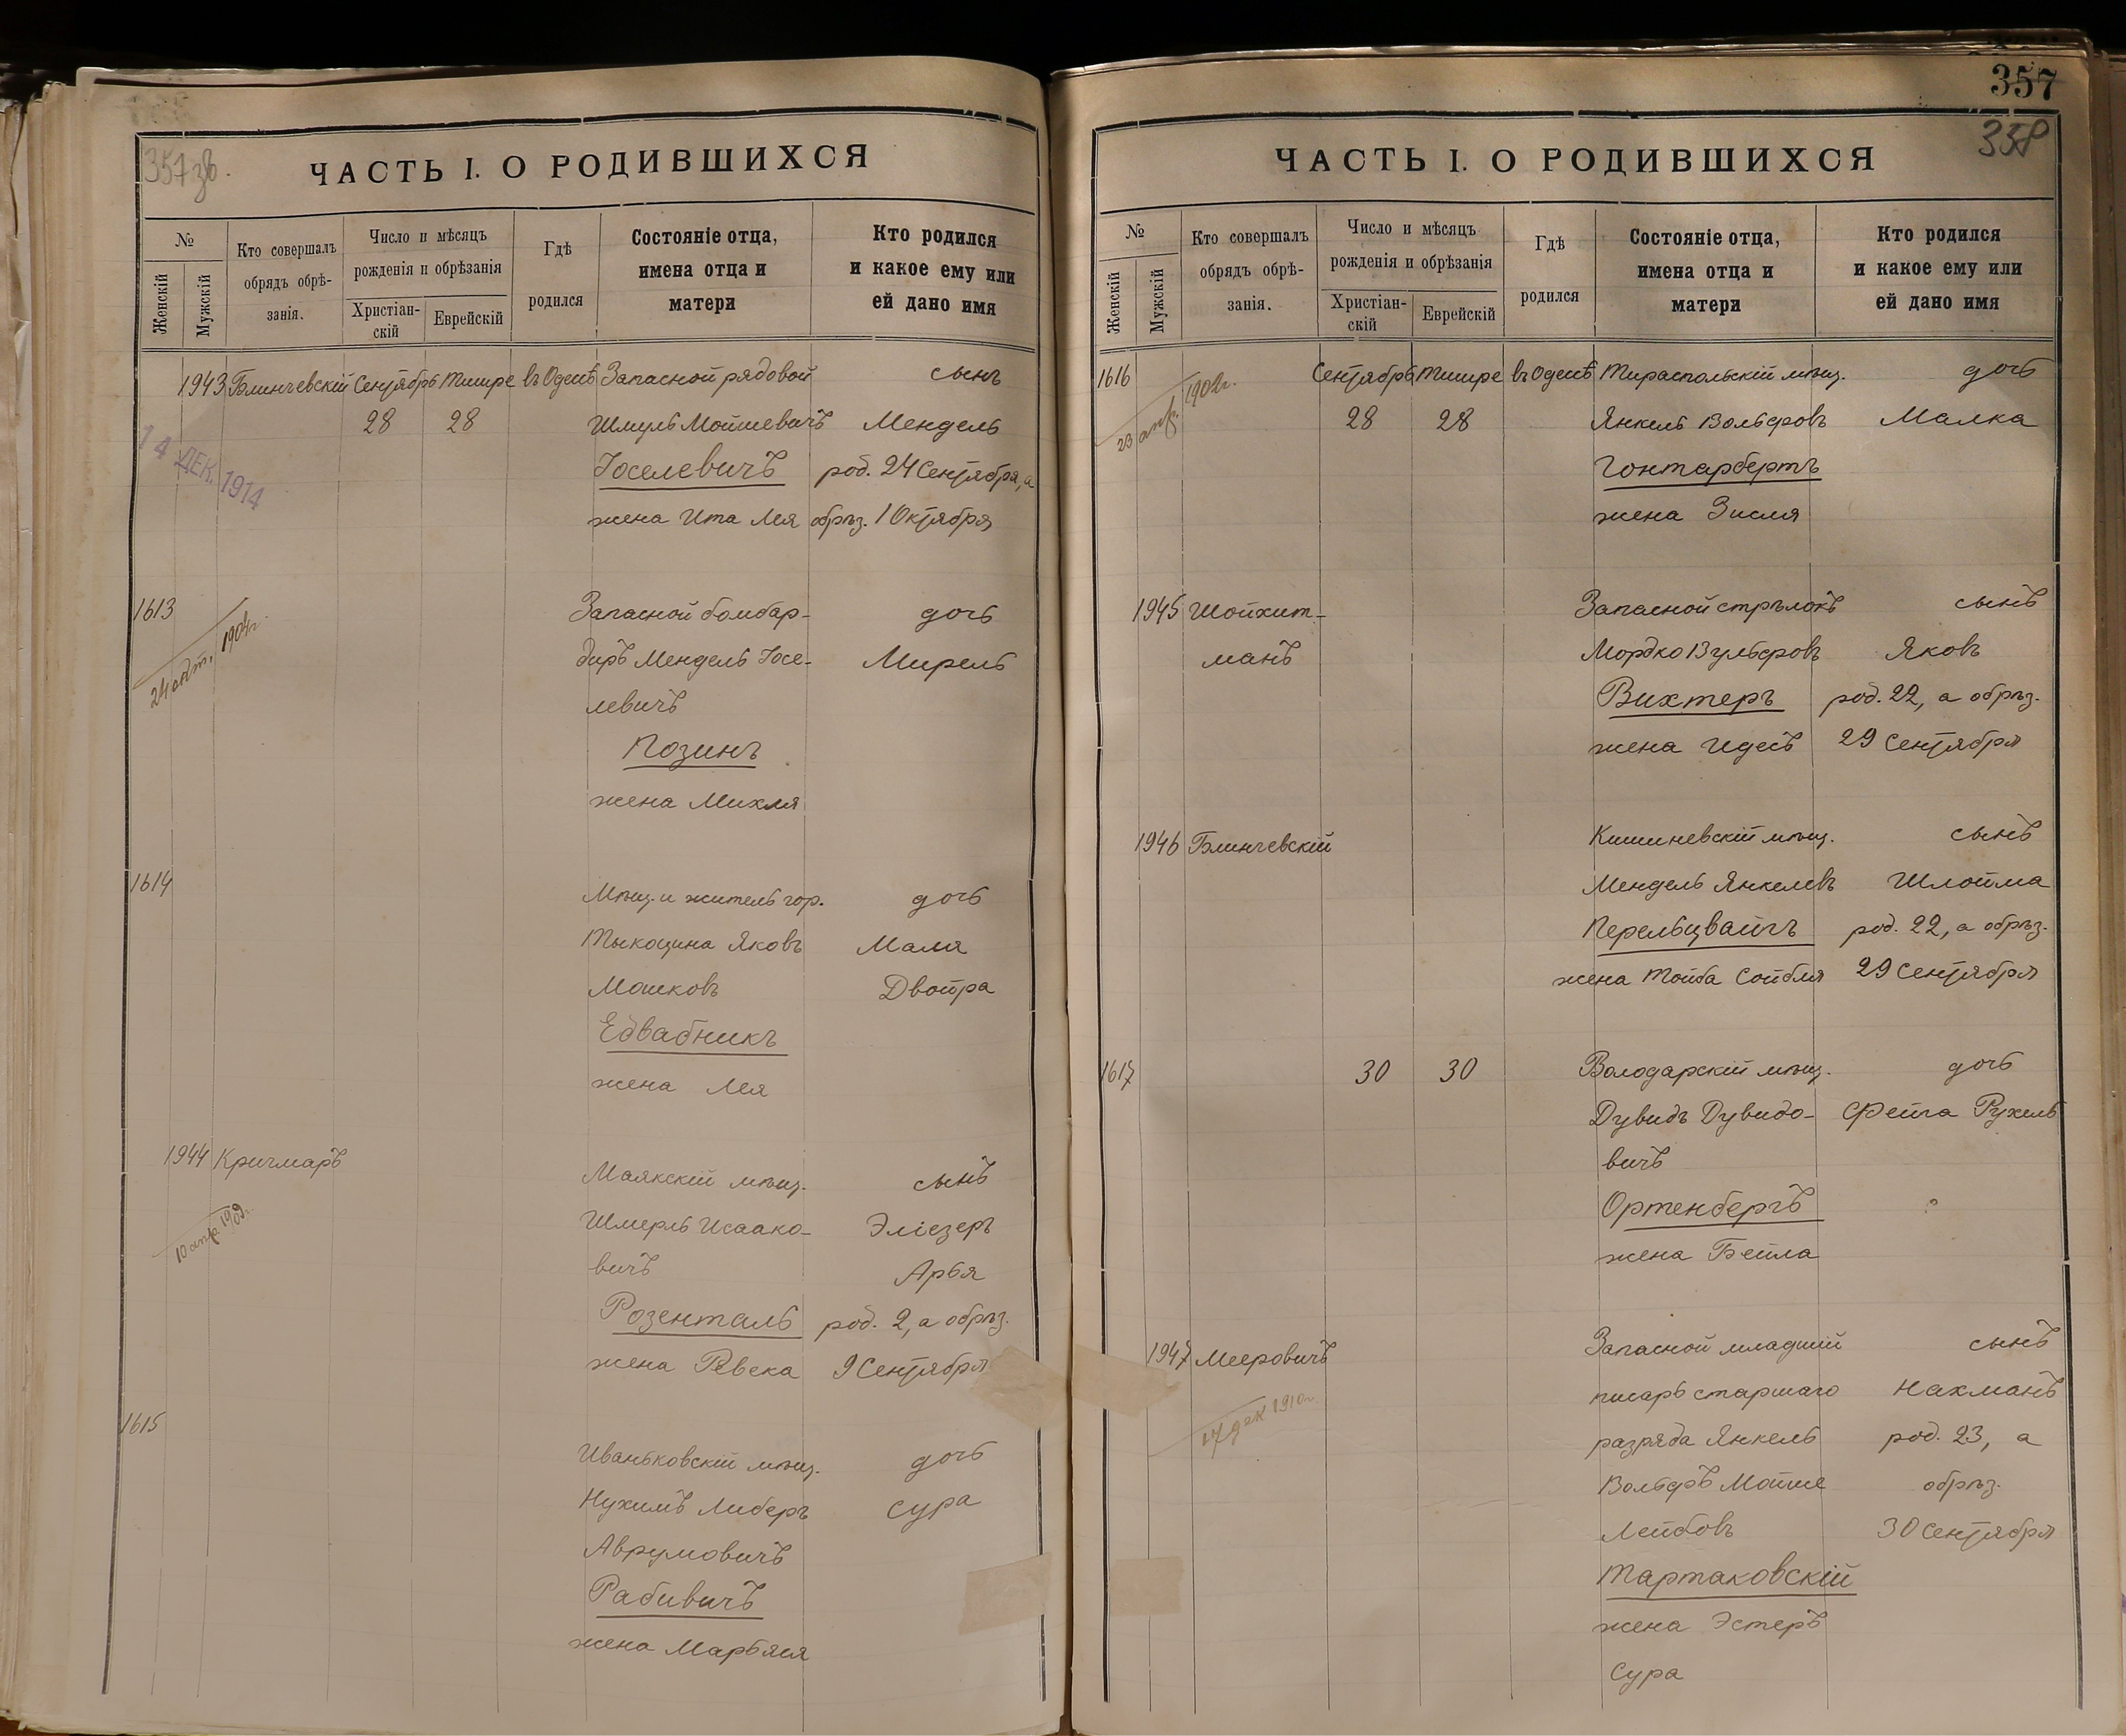 357зв.
ЧАСТЬ I. О РОДИВШИХСЯ
№
Женскій
Мужскій
Кто совершалъ
обрядъ обрѣ-
занія.
Число и мѣсяцъ
рожденія и обрѣзанія
Христіан-
скій
Еврейскій
Гдѣ
родился
Состояніе отца,
имена отца и
матери
Кто родился
и какое ему или
ей дано имя
1943 Блинчевскій Сентябрь Тишре въ Одессѣ Запасной рядовой сынъ
28 28 Шмуль Мойшевичъ Мендель
14 ДЕК. 1914
Іоселевичъ род. 24 Сентября, а
жена Ита Лея обрѣз. 1 Октября
1613 Запасной бомбар- дочь
24 окт. 1904г.
диръ Мендель Іосе- Мирель
левичъ
Позинъ
жена Михля
1614 Мѣщ. и житель гор. дочь
Тыкоцина Яковъ Маля
Мошковъ Двойра
Едвабникъ
жена Лея
1944 Кричмаръ Маякскій мѣщ. сынъ
10 апр. 1909г.
Шмерль Исаако- Эліезеръ
вичъ Арья
Розенталь род. 2, а обрѣз.
жена Ревека 9 Сентября
1615 Иваньковскій мѣщ. дочь
Нухимъ Либеръ Сура
Аврумовичъ
Рабивичъ
жена Марьяся
357
358
ЧАСТЬ I. О РОДИВШИХСЯ
№
Женскій
Мужскій
Кто совершалъ
обрядъ обрѣ-
занія.
Число и мѣсяцъ
рожденія и обрѣзанія
Христіан-
скій
Еврейскій
Гдѣ
родился
Состояніе отца,
имена отца и
матери
Кто родился
и какое ему или
ей дано имя
1616 Сентябрь Тишре въ Одессѣ Тираспольскій мѣщ. дочь
23 апр. 1902г.
28 28 Янкель Вольфовъ Малка
Гонтарбергъ
жена Зисля
1945 Шойхит- Запасной стрѣлокъ сынъ
манъ Мордко Вульфовъ Яковъ
Вихтеръ род. 22, а обрѣз.
жена Идесъ 29 Сентября
1946 Блинчевскій Кишиневскій мѣщ. сынъ
Мендель Янкелевъ Шлойма
Перельцвайгъ род. 22, а обрѣз.
жена Тойба Сойбля 29 Сентября
1617 30 30 Володарскій мѣщ. дочь
Дувидъ Дувидо- Фейга Рухель
вичъ
Ортенбергъ
жена Бейла
1947 Мееровичъ Запасной младшій сынъ
17 дек 1910г.
писарь старшаго Нахманъ
разряда Янкель род. 23, а
Вольфъ Мойше обрѣз.
Лейбовъ 30 Сентября
Тартаковскій
жена Эстеръ
Сура